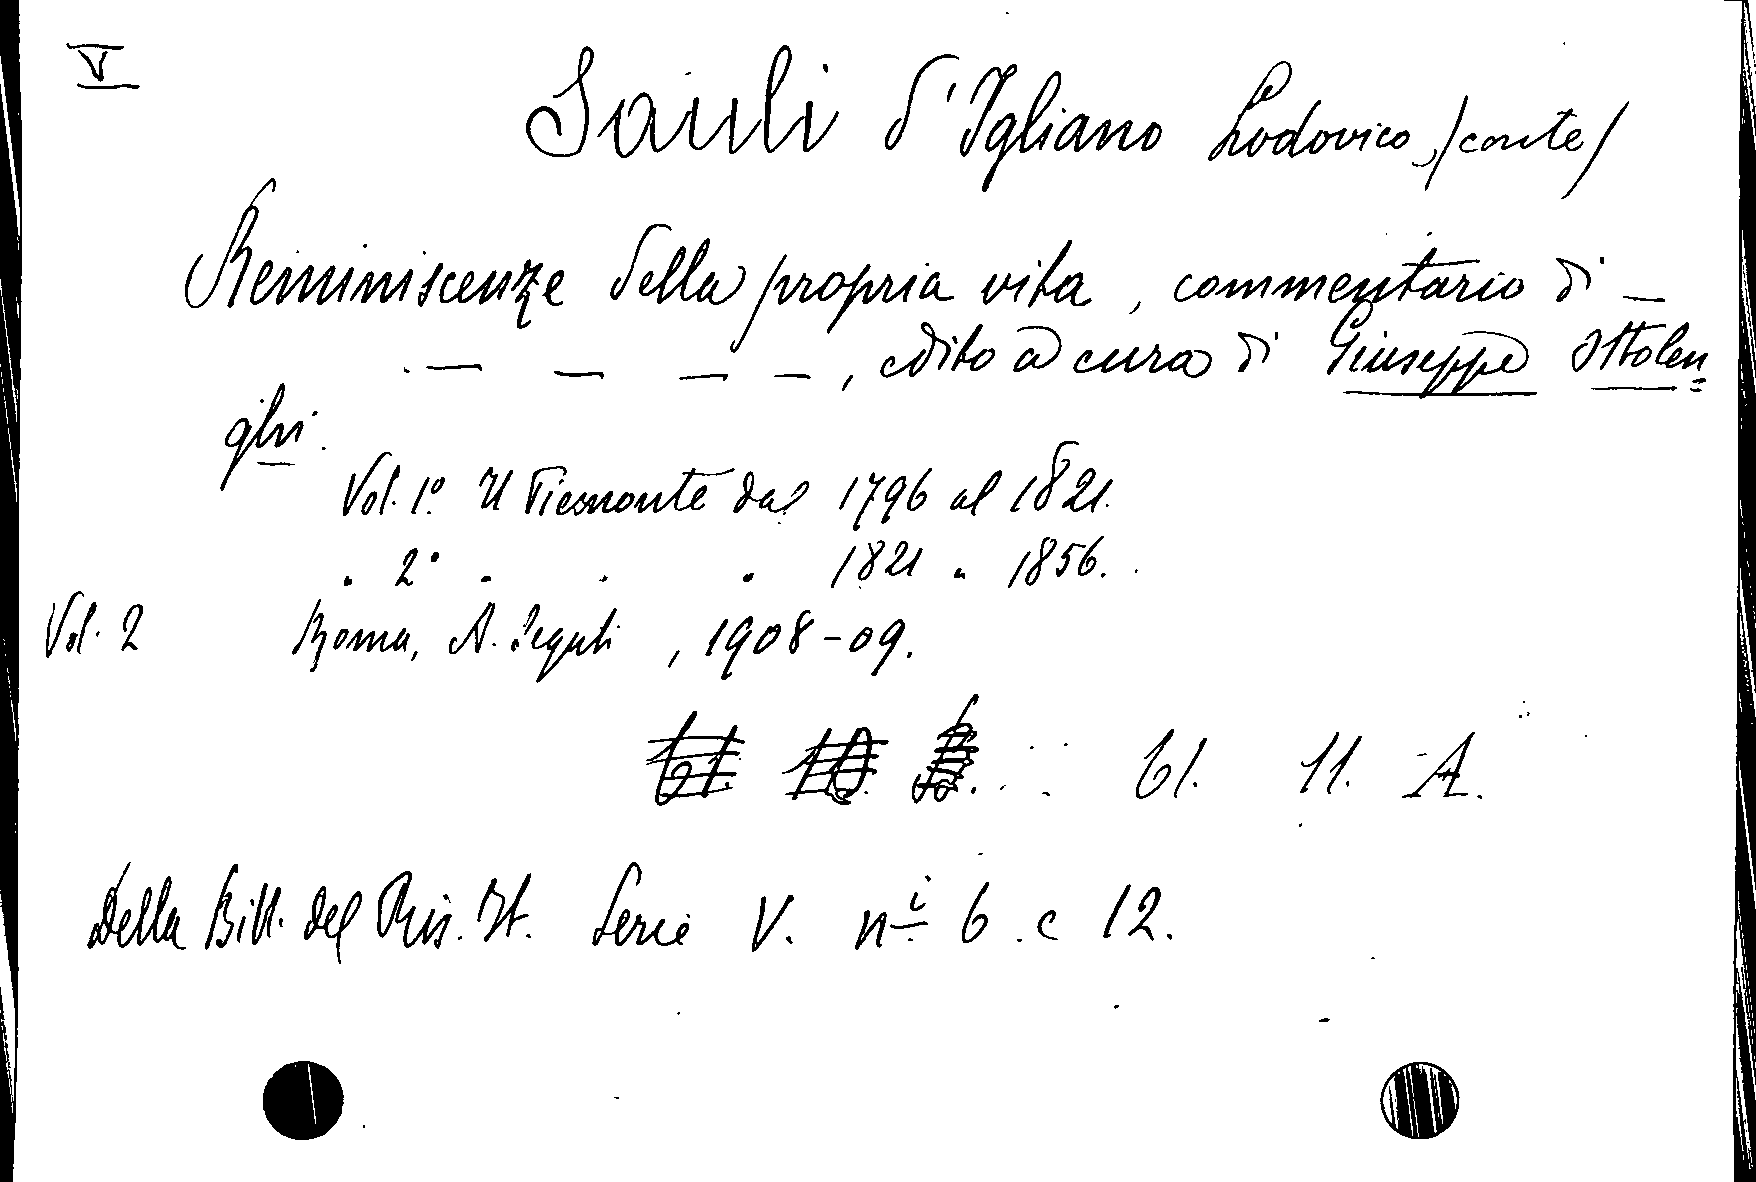 V
Sauli d'Igliano Lodovico, /conte/
Reminiscenze della propria vita, commentario di —
— — — —, edito a cura di Giuseppe Ottolen=
ghi.
Vol. 1º. Il Piemonte dal 1796 al 1821.
" 2º " " " 1821 " 1856.
Vol. 2 Roma, A. Segati, 1908-09.
61. 11. A.
Della Bibl. del Ris. It. Serie V. ni 6 e 12.